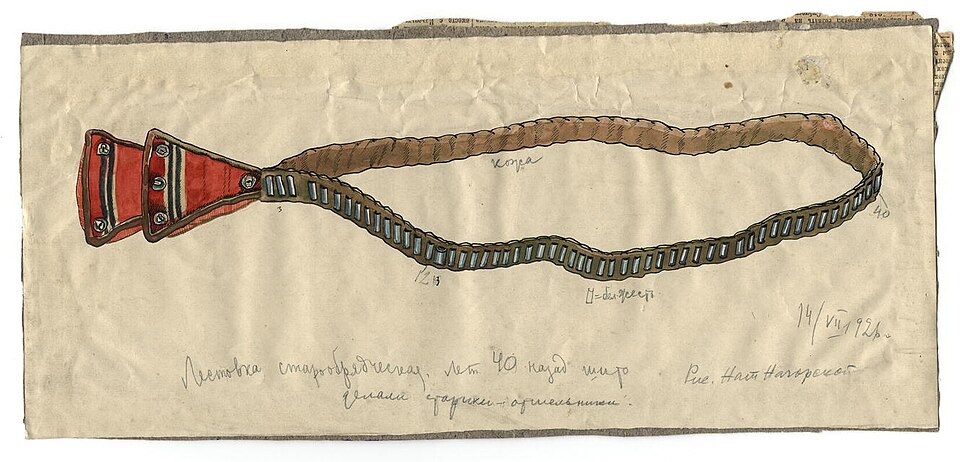 кожа
3
12
40
= бел. жесть
14/VII 192
Лестовка старообрядческая, лет 40 назад
делали старики-отшельники.
Рис. Нат Нагорской